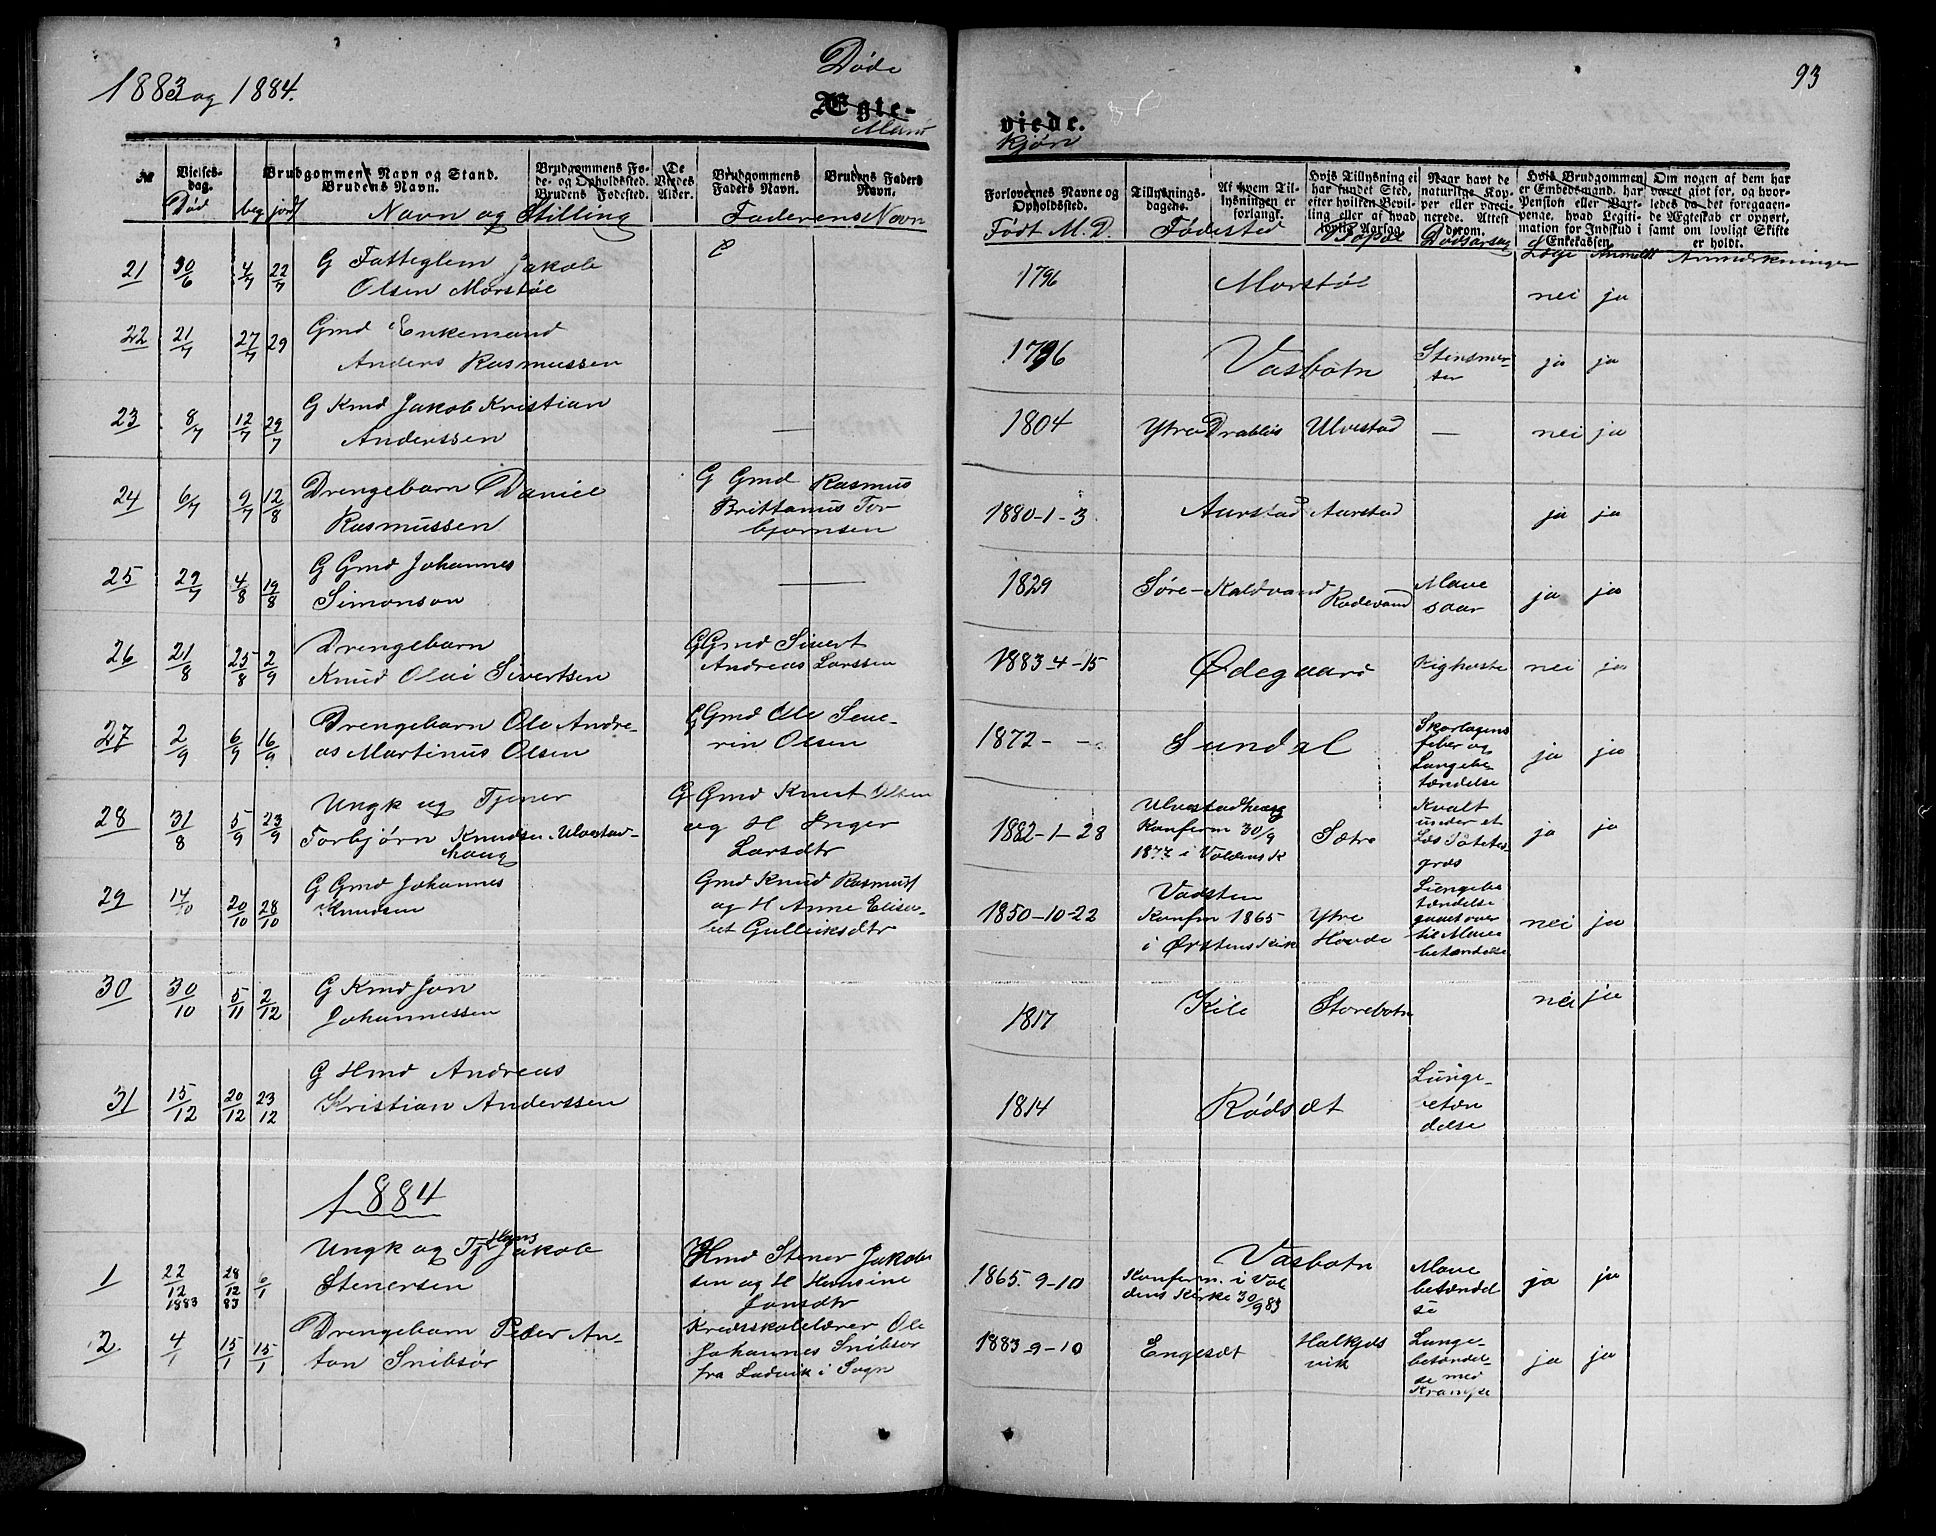 1883 og 1884.
Døde
Ægte-
Mand
viede.
kjøn
93
Vielses-
dag.
Død
beg jord
Brudgommens Navn og Stand.
Brudens Navn.
Navn og Stilling
Brudgommens Fø-
de- og Opholdssted.
Brudens Fødested.
De
Viedes
Alder.
Brudgommens
Faders Navn.
Brudens Faders
Navn.
Faderens Navn
Forlovernes Navne og
Opholdssted.
Født M. D.
Tillysnings-
dagene.
Af hvem Til-
lysningen er
forlangt.
Fødested
Hvis Tillysning ei
har fundet Sted,
efter hvilken Bevil-
ling eller af hvad
lovlig Aarsag.
Bopæl
Naar havt de
naturlige Kop-
per eller vacci-
nerede. Attest
derom.
Dødsarsag
Hvis Brudgommen
er Embedsmand, har
Pension eller Vart-
penge, hvad Legiti-
mation for Indskud i
Enkekassen.
Læge Anmeldt
Om nogen af dem har
været gift før, og hvor-
ledes da det foregaaen-
de Ægteskab er ophørt,
samt om lovligt Skifte
er holdt.
Anmærkninger
21 30/6 4/7 22/7 G Fatteglem Jakob
Olsen Morstøl
1796 Morstøl nei ja
22 21/7 27/7 29 Gmd Enkemand
Anders Rasmussen
1796 Vasbotn Stensmer-
ter ja ja
23 8/7 12/7 29/7 G Kmd Jakob Kristian
Anderssen —
1804 Ytre Drabløs Ulvestad — nei ja
24 6/7 9/7 12/8 Drengebarn Daniel
Rasmussen
G Gmd Rasmus
Brittanus Tor-
bjørnsen
1880-1-3 Aarstad Aarstad ja ja
25 29/7 4/8 19/8 G Gmd Johannes
Simonson —
1829 Søre-Kaldvand Rodevand Mave
saar ja ja
26 21/8 25/8 2/9 Drengebarn
Knud Olai Sivertsen
G Gmd Sivert
Andreas Larssen
1883-4-15 Ødegaard Kighoste nei ja
27 2/9 6/9 16/9 Drengebarn Ole Andre-
as Martinus Olsen
G Gmd Ole Seve-
rin Olsen
1872- - Sundal Skarlagens
feber og
Lungebe
tændelse ja ja
28 31/8 5/9 23/9 Ungk og Tjener
Torbjørn Knudsen Ulvestad-
haug
G Gmd Knut Olsen
og H Inger
Larsdtr
1882-1-28 Ulvestadhaug
Konferm 30/9
1877 i Voldens K
Sætre
Kvalt
under et
Læs Potetes-
græs ja ja
29 14/10 20/10 28/10 G Gmd Johannes
Knudsen
Gmd Knud Rasmuss
og H Anne Elisa-
bet Gulleiksdtr
1850-10-22 Vadsten
Konfm 1865
i Ørstens Kirk
Ytre
Hovde
Lungebe
tændelse
gaaet over
til Mave
betændelse nei ja
30 30/10 5/11 2/12 G Kmd Jon
Johannessen
1817 Kile Storebotn nei ja
31 15/12 20/12 23/12 G Hmd Andreas
Kristian Anderssen
1814 Rødsæt Lunge-
betæn
delse
1884
1 22/12 1883 28/12 83 6/1 Ungk og Tj Hans Jakob
Stenersen
Hmd Stener Jakob-
sen og H Hansine
Jonsdtr
1865. 9-10 Vasbotn
Konferm. i Vol
dens Kirke 30/9 83
Mave
betændel
se ja ja
2 4/1 15/1 15/1 Drengebarn Peder An-
ton Snibsør
Kredsskolelærer Ole
Johannes Snibsør
fra Ladvik i Sogn
1883-9-10 Engesæt Halkjels
vik
Lunge-
betændel-
se med
Krampe ja ja